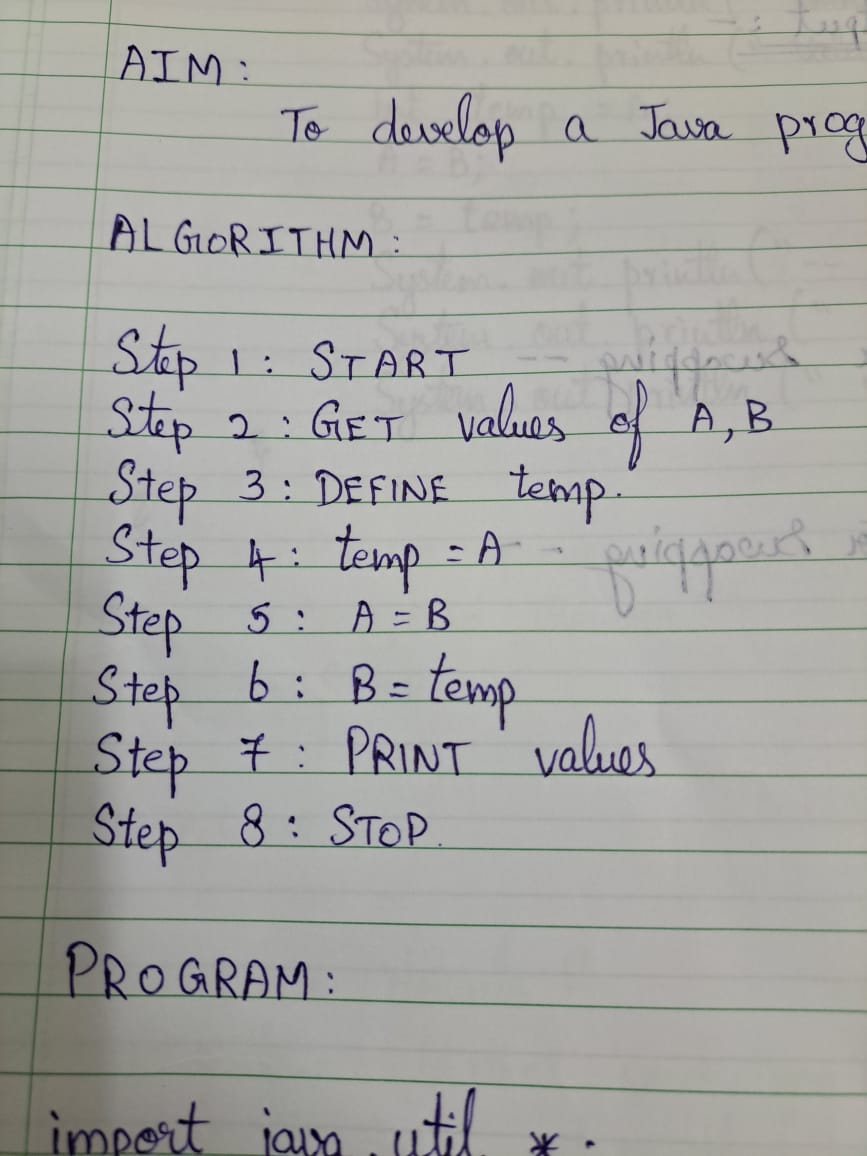 AIM:
To develop a Java prog
ALGORITHM:
Step 1: START
Step 2: GET values of A, B
Step 3: DEFINE temp.
Step 4: temp = A
Step 5: A = B
Step 6: B = temp
Step 7: PRINT values
Step 8: STOP.
PROGRAM:
import java.util.*;